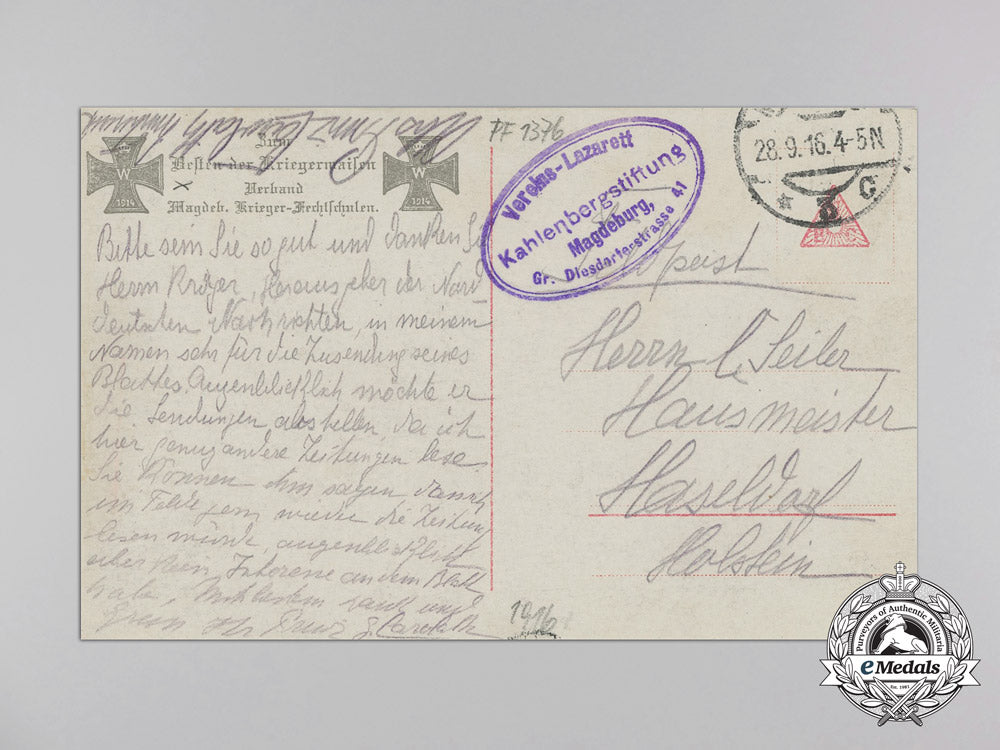 PF 1376
Zum
Besten der Kriegerwaisen
Verband
Magdeb. Krieger-Fechtschulen.
W
1914
W
1914
Bitte sein Sie so gut und danken Sie
Herrn Kröger, Herausgeber der Nord
deutschen Nachrichten, in meinem
Namen sehr für die Zusendung seines
Blattes. Augenblicklich möchte er
die Sendungen abstellen, da ich
hier genug andere Zeitungen lese
Sie können ihm sagen dass ich
im Felde gern wieder die Zeitung
lesen würde augenblicklich
aber kein Interesse an dem Blatt
habe. und
Gruss
Vereins-Lazarett
Kahlenbergstiftung
Magdeburg,
Gr. Diesdorferstrasse 41
28.9.16.4-5N
* 3 C
Herrn Seiler
Hausmeister
Haseldorf
Holstein
1916
Purveyors of Authentic Militaria
eMedals
Est. 1985